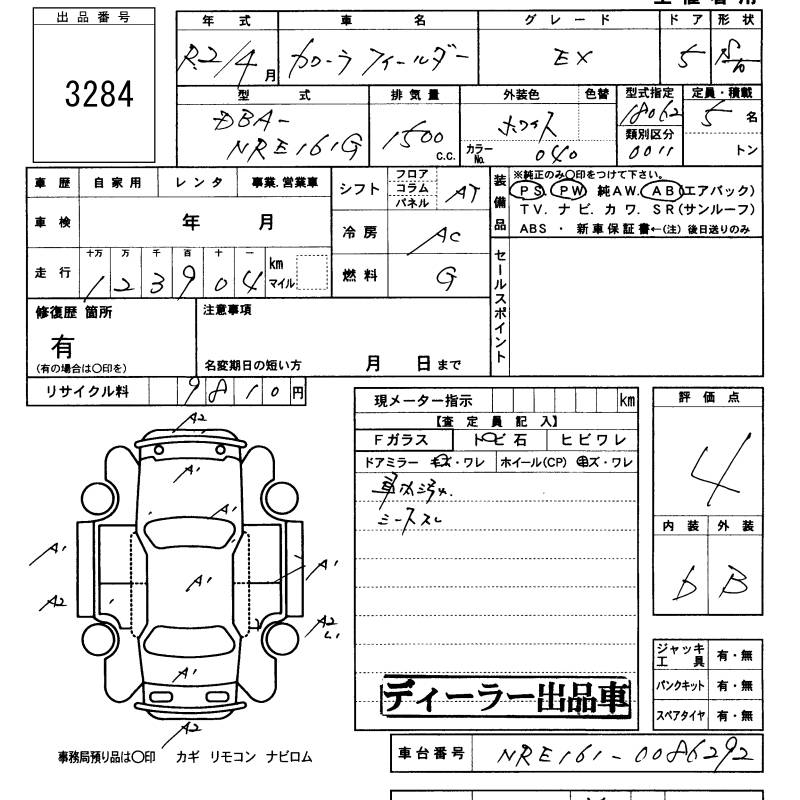 出品番号
3284
年式 車名 グレード ドア 形状
R2/4月 カローラ フィールダー EX 5
型式 排気量 外装色 色替 型式指定 定員・積載
DBA-NRE161G 1500 c.c. ホワイト 18062 5名
カラーNo. 040 類別区分 0011 トン
車歴 自家用 レンタ 事業.営業車
シフト フロア コラム パネル AT
装備品
※純正のみ○印をつけて下さい。
PS PW 純AW. AB(エアバック)
TV. ナビ. カワ. SR(サンルーフ)
ABS ・ 新車保証書←(注) 後日送りのみ
車検 年 月
冷房 AC
走行 十万 万 千 百 十 一
123904 km マイル
燃料 G
セールスポイント
修復歴 箇所
有
(有の場合は○印を)
注意事項
名変期日の短い方 月 日まで
リサイクル料 9810円
現メーター指示 km
【査定員記入】
Fガラス トビ石 ヒビワレ
ドアミラー キズ・ワレ ホイール(CP) キズ・ワレ
車内汚れ.
シートスレ
評価点
4
内装 外装
b B
A2
A1
A1
A1
A1
A1
A2
A2
A1
A2
ジャッキ工具 有・無
パンクキット 有・無
スペアタイヤ 有・無
ディーラー出品車
事務局預り品は○印 カギ リモコン ナビロム
車台番号 NRE161-0086292